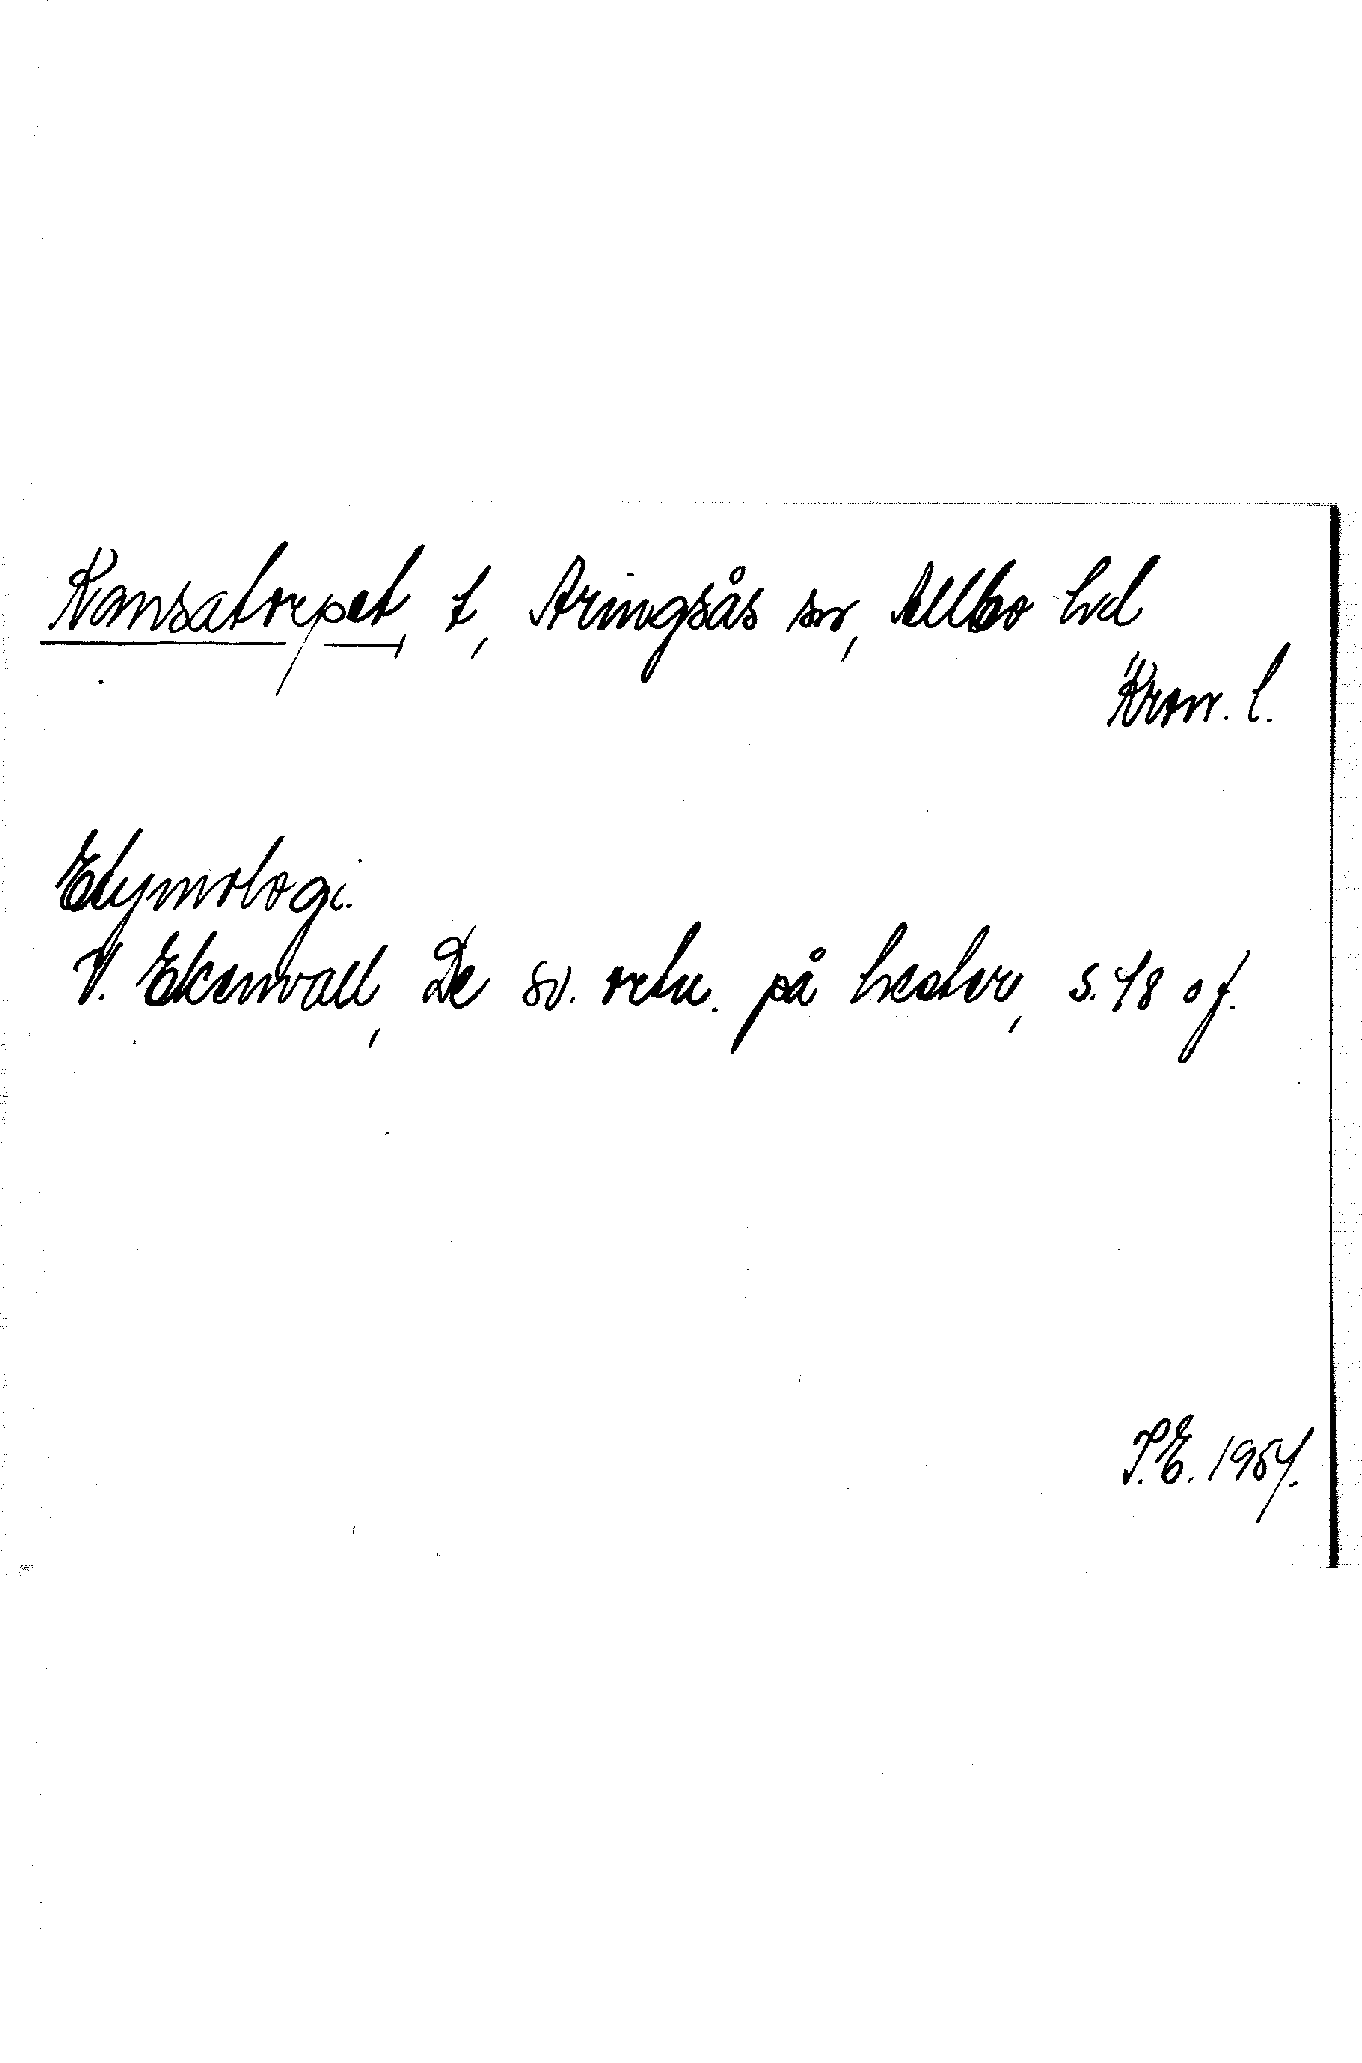 Konsatorpet, t, Aringsås sn, Allbo hd
Kron. l.
Etymologi.
V. Ekenvall, De sv. ortn. på hester, s. 48 o f.
P.E. 1954.